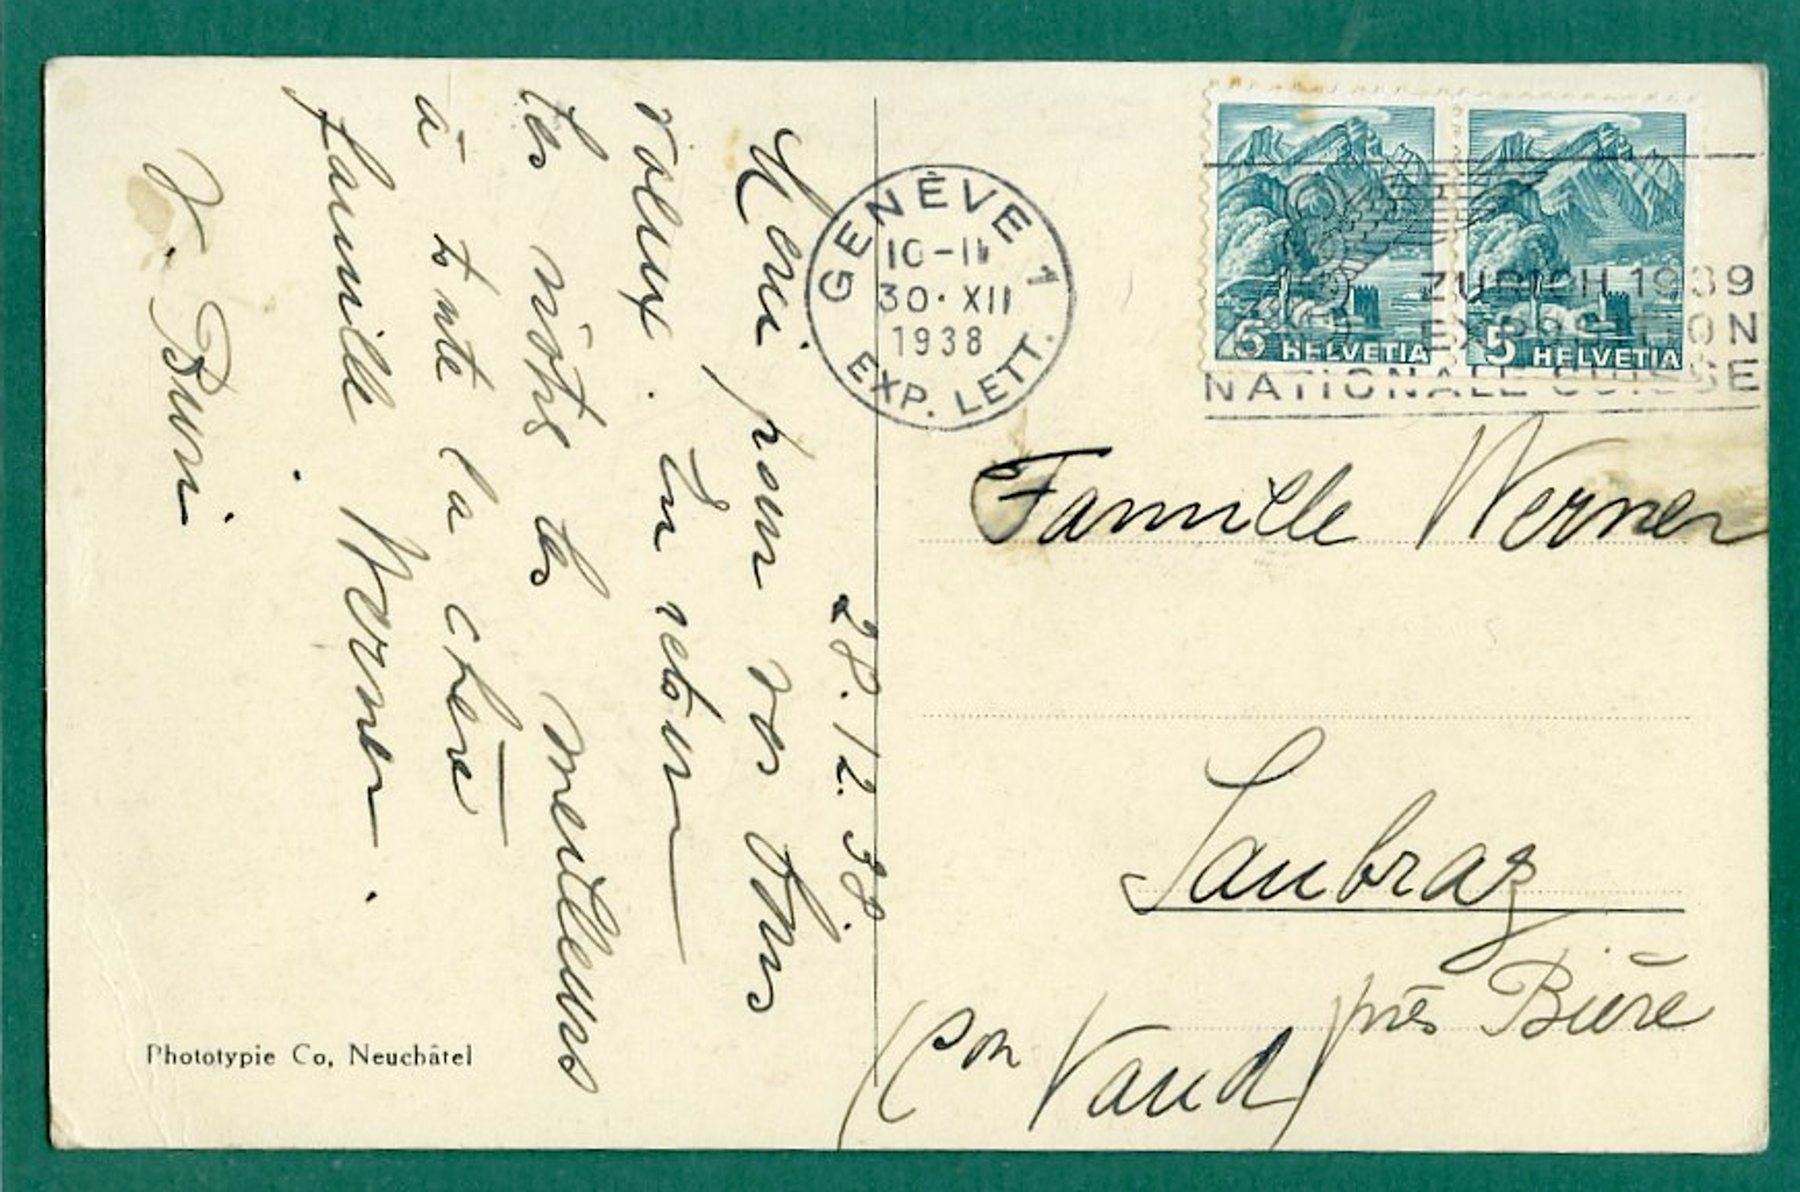 28.12.38.
Merci pour vos bons
voeux. En retour
les nôtres les meilleurs
à toute la chère
famille Werner.
Y. Buri
Phototypie Co, Neuchâtel
GENÈVE 1
10-11
30. XII
1938
EXP. LETT.
ZURICH 1939
EXPOSITION
NATIONALE SUISSE
5 HELVETIA
5 HELVETIA
Famille Werner
Saubraz
près Bière
(Con Vaud)